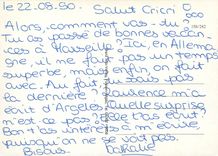 le 22.08.90. Salut Cricri
Alors, comment vas-tu?
Tu as passé de bonnes vacan-
ces à Marseille? Ici, en Allema-
gne, il ne fait pas un temps
superbe, mais enfin, on fait
avec. Au fait, je sous
la dernière Laurence m'a
écrit d'Argelès quelle surprise
n'est ce pas? elle t'as écrit?
Bon t'as intérêt à m'écrire
puisqu'on ne se voit pas.
Bisous.